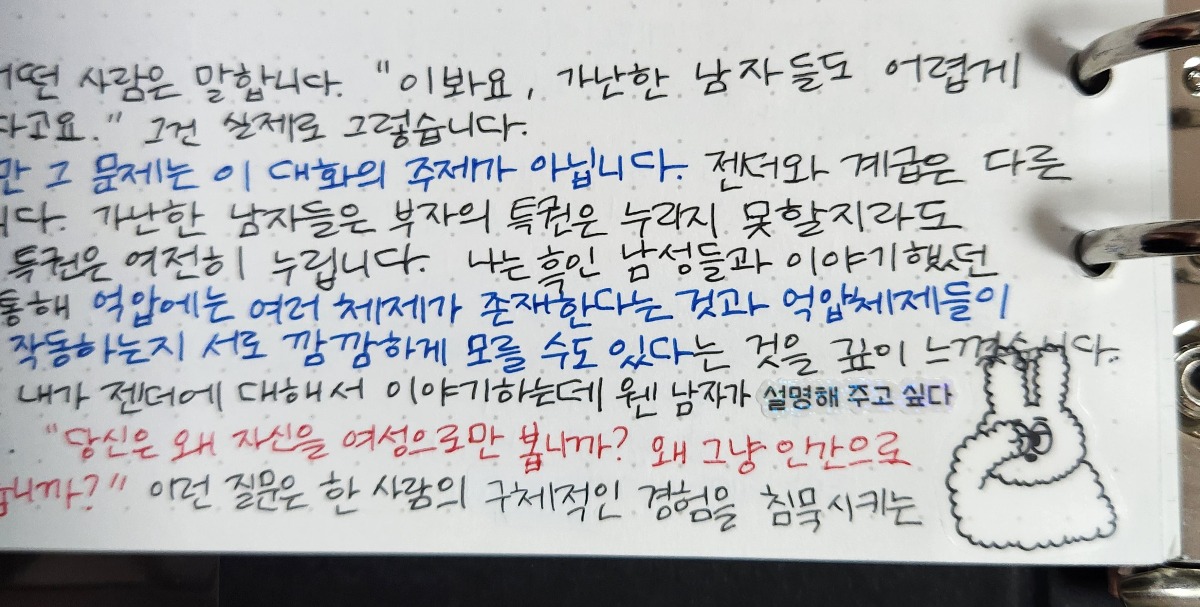 어떤 사람은 말합니다. "이봐요, 가난한 남자들도 어렵게
다고요." 그건 실제로 그렇습니다.
만 그 문제는 이 대화의 주제가 아닙니다. 젠더와 계급은 다른
니다. 가난한 남자들은 부자의 특권은 누리지 못할지라도
특권은 여전히 누립니다. 나는 흑인 남성들과 이야기했던
통해 억압에는 여러 체제가 존재한다는 것과 억압체제들이
작동하는지 서로 깜깜하게 모를 수도 있다는 것을 깊이 느꼈습니다.
내가 젠더에 대해서 이야기하는데 웬 남자가 설명해 주고 싶다
"당신은 왜 자신을 여성으로만 봅니까? 왜 그냥 인간으로
봅니까?" 이런 질문은 한 사람의 구체적인 경험을 침묵시키는